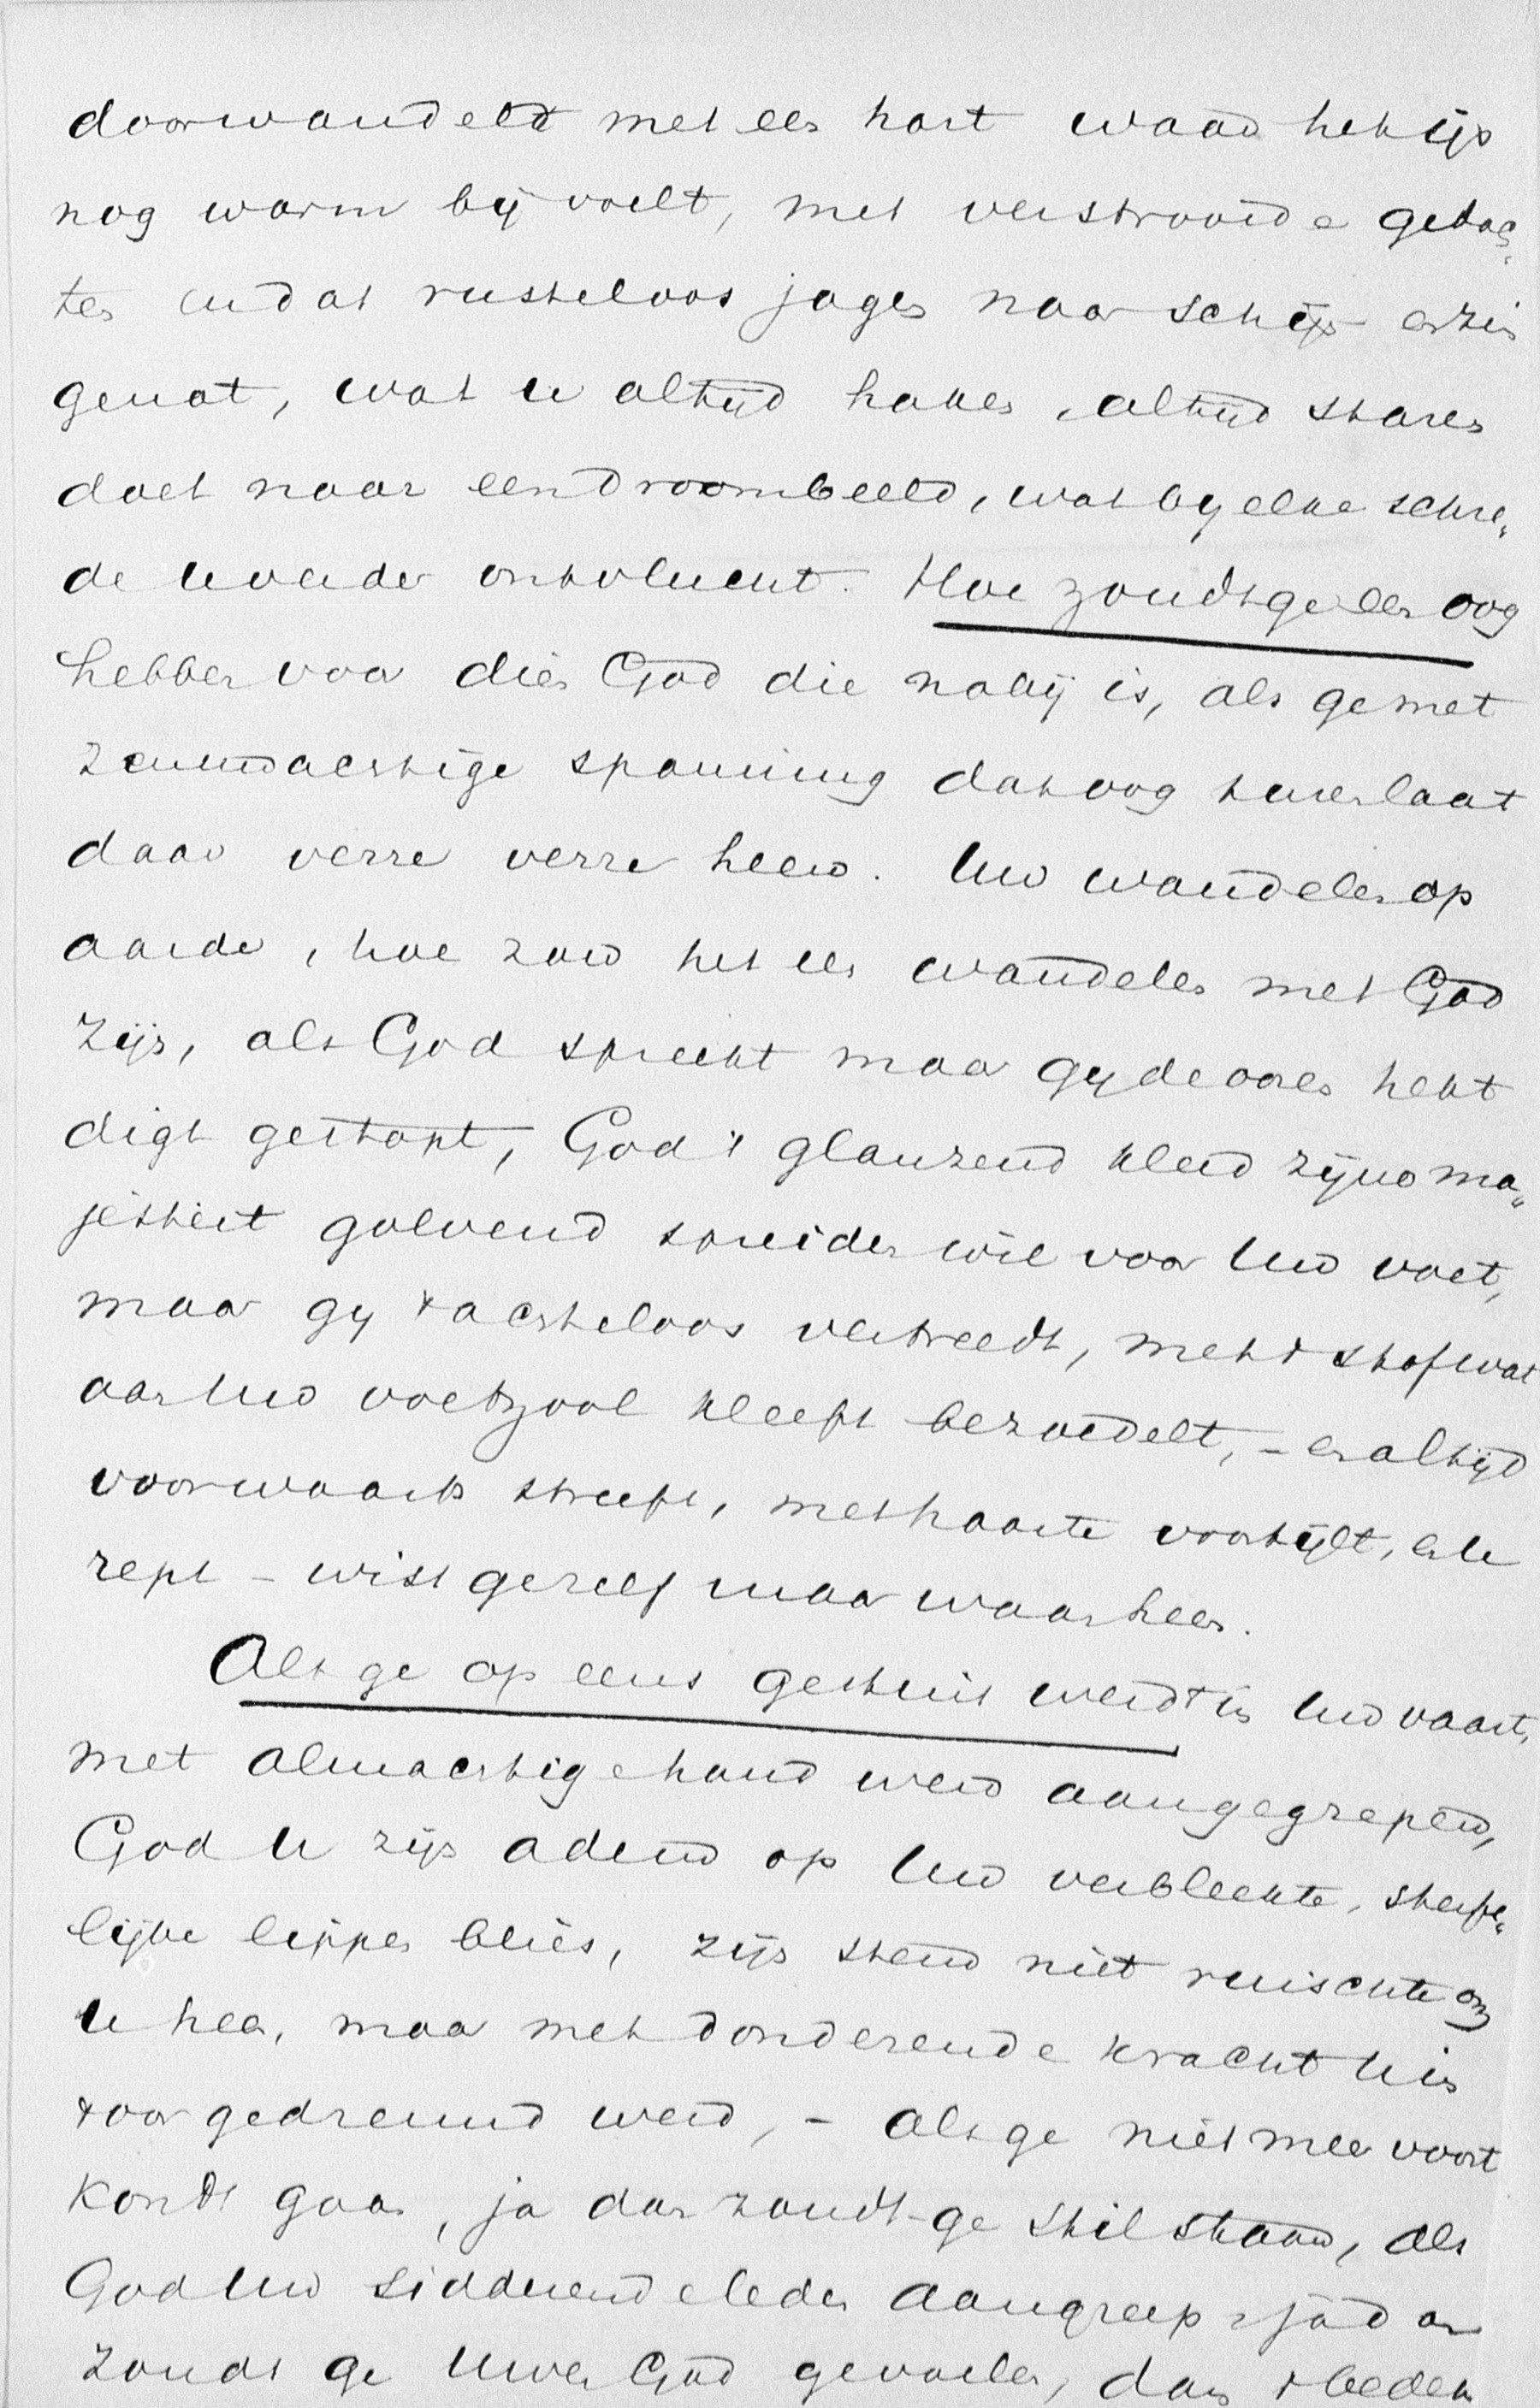 doorwandeld met een hart waar het ijs
nog warm bij voelt, met verstrooide gedach„
ten en dat rusteloos jagen naar schijn en zin
genot, wat u altijd haken, altijd staren
doet naar een droombeeld, wat by elke schre„
de u verder ontvlucht. Hoe zoudt ge een oog
hebben voor dien God die nabij is, als ge met
zenuwachtige spanning dat oog turen laat
daar verre verre heen. Uw wandelen op
aarde, hoe zou het een wandelen met God
zijn, als God spreekt maar gy de ooren hebt
digt gestopt, God 't glanzend kleed zijner ma„
jesteit golvend spreiden wil voor Uw voet,
maar gy 't achteloos vertreedt, met 't stof wat
aan Uw voetzool kleeft bezoedelt, – en altijd
voorwaarts streeft, met haaste voortijlt, en u
rept – wist ge zelf maar waarheen.
Als ge op eens gestuit werdt in Uw vaart,
met almachtige hand werd aangegrepen,
God U zijn adem op Uw verbleekte, sterfe„
lijke lippen blies, zijn stem niet ruischte om
U heen, maar met donderende kracht U in
't oor gedreund werd, – als ge niet meer voort
kondt gaan, ja dan zoudt ge stil staan, als
God Uw sidderende leden aangreep, ja dan
zoudt ge Uwen God gevoelen, dan